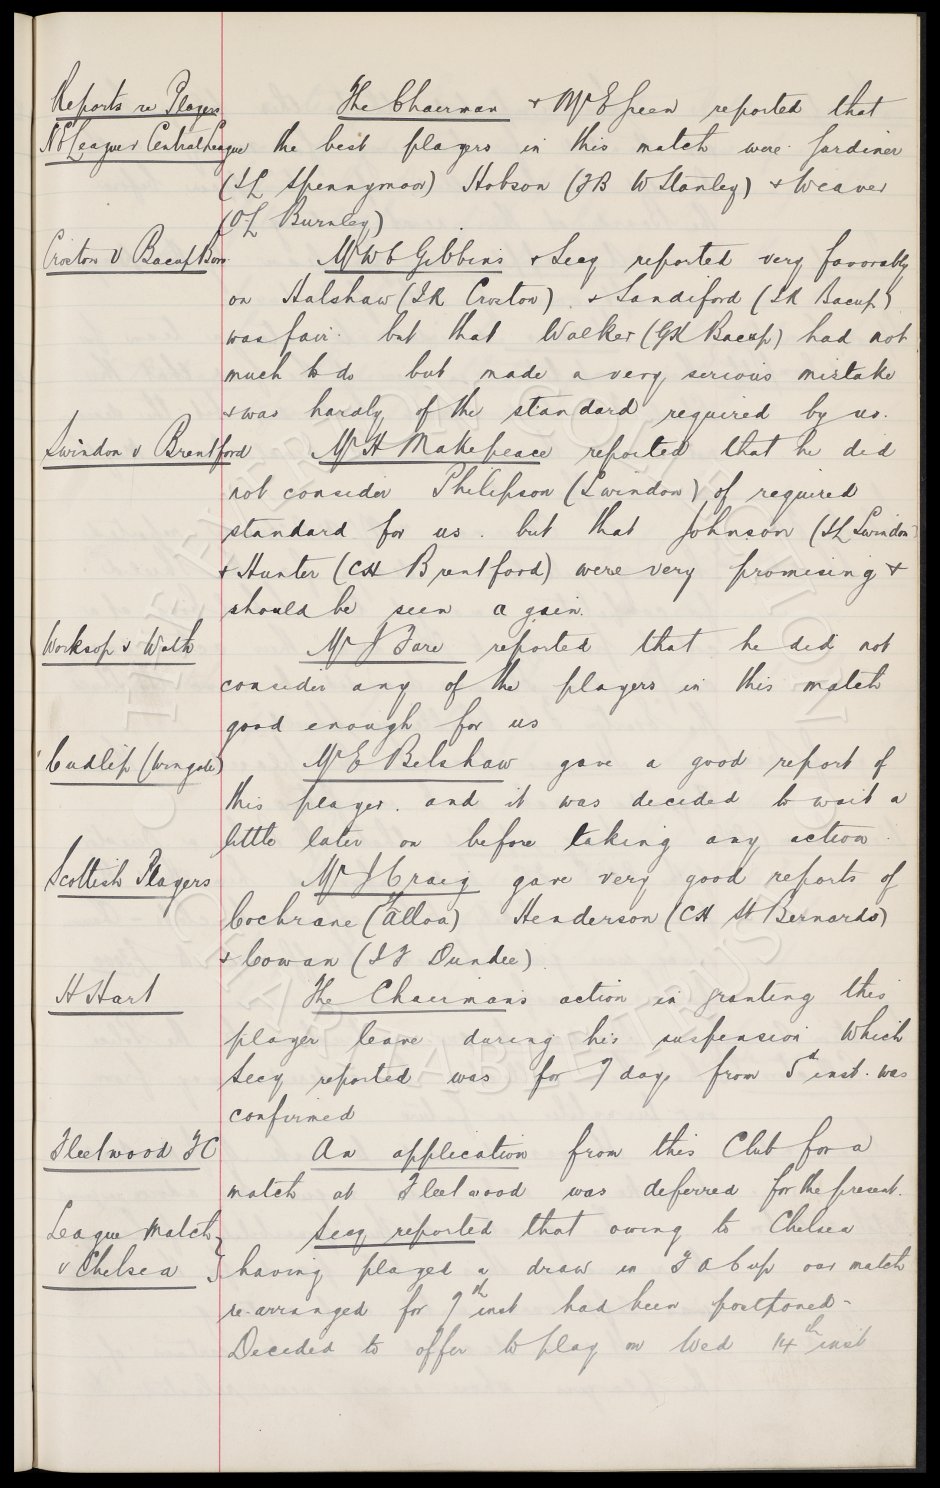 Reports re Players The Chairman & Mr E Green reported that
N E League v Central League the best players in this match were Gardiner
(IL Spennymoor) Hobson (FB W Stanley) & Weaver
(OL Burnley)
Croston v Bacup Boro Mr W C Gibbins & Secy reported very favorably
on Halshaw (IR Croston) & Sandiford (IR Bacup)
was fair but that Walker (GK Bacup) had not
much to do but made a very serious mistake
& was hardly of the standard required by us.
Swindon v Brentford Mr H Makepeace reported that he did
not consider Philipson (Swindon) of required
standard for us. but that Johnson (IL Swindon)
& Hunter (CH Brentford) were very promising &
should be seen again.
Worksop v Wath Mr J Fare reported that he did not
consider any of the players in this match
good enough for us
Cudlip (Wingate) Mr E Belshaw gave a good report of
this player. and it was decided to wait a
little later on before taking any action.
Scottish Players Mr J Craig gave very good reports of
Cochrane (Alloa) Henderson (CH St Bernards)
& Cowan (IF Dundee)
H Hart The Chairman's action in granting this
player leave during his suspension which
Secy reported was for 7 days from 5th inst. was
confirmed
Fleetwood FC An application from this Club for a
match at Fleetwood was deferred for the present.
League Match Secy reported that owing to Chelsea
v Chelsea } having played a draw in F A Cup our match
re-arranged for 7th inst had been postponed-
Decided to offer to play on Wed 14th inst